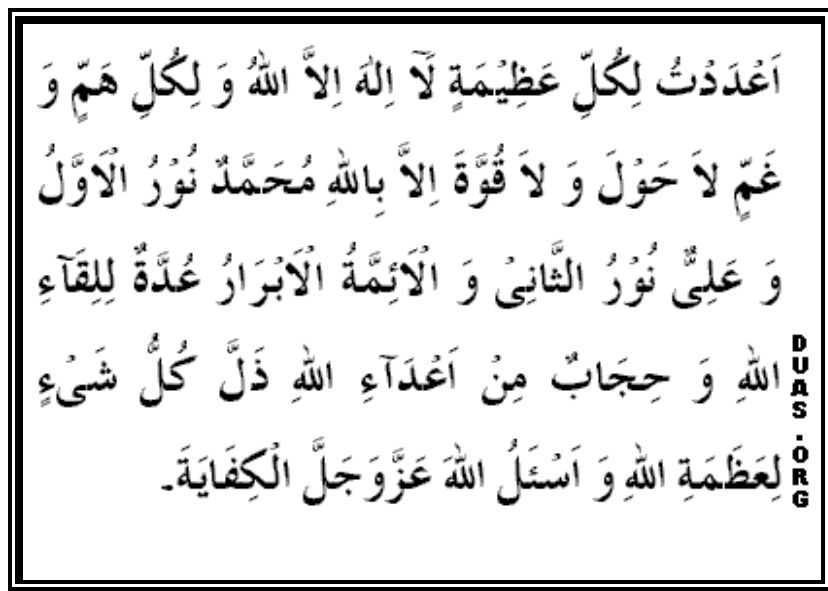 اَعْدَدْتُ لِكُلِّ عَظِيْمَةٍ لَآ اِلٰهَ اِلاَّ اللهُ وَ لِكُلِّ هَمٍّ وَ
غَمٍّ لاَ حَوْلَ وَ لاَ قُوَّةَ اِلاَّ بِاللهِ مُحَمَّدٌ نُوْرُ الْاَوَّلُ
وَ عَلِىٌّ نُوْرُ الثَّانِىْ وَ الْاَئِمَّةُ الْاَبْرَارُ عُدَّةٌ لِلِقَآءِ
اللهِ وَ حِجَابٌ مِنْ اَعْدَآءِ اللهِ ذَلَّ كُلُّ شَىْءٍ
لِعَظَمَةِ اللهِ وَ اَسْئَلُ اللهَ عَزَّوَجَلَّ الْكِفَايَةَ۔
DUAS.ORG